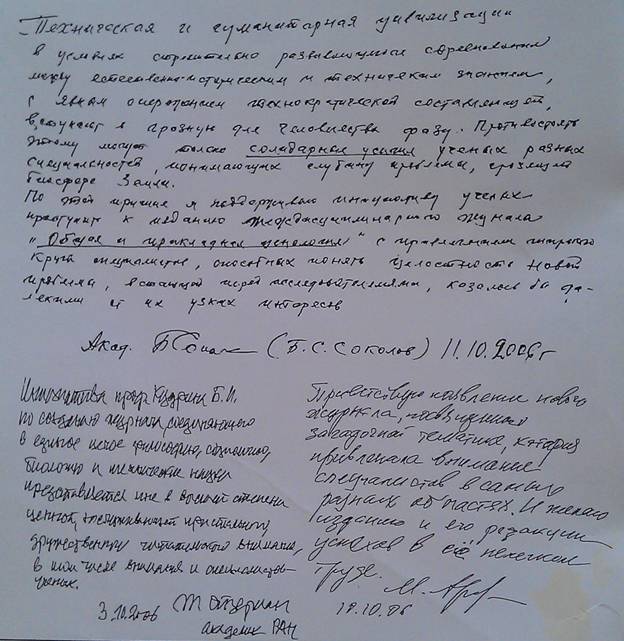 Техническая и гуманитарная цивилизации
в условиях стремительно развивающегося соревнования
между естественно-историческим и техническим знанием,
с явным опережением технократической составляющей,
вступают в грозную для человечества фазу. Противостоять
этому могут только солидарные усилия ученых разных
специальностей, понимающих глубину проблемы, грозящей
биосфере Земли.
По этой причине я поддерживаю инициативу ученых
приступить к изданию междисциплинарного журнала
"Общая и прикладная ценология" с привлечением широкого
круга специалистов, способных понять целостность новой
проблемы, вставшей перед исследователями, казалось бы да-
лекими от их узких интересов
Акад. (Б.С. Соколов) 11.10.2006г
Инициатива проф. Кудрина Б.И.
по созданию журнала, соединяющего
в единое целое философию, социологию,
биологию и технические науки
представляется мне в высшей степени
ценной, заслуживающей пристального
дружественного читательского внимания,
в том числе внимания и специалистов-
ученых.
3.10.2006 Т Ойзерман
академик РАН
Приветствую появление нового
журнала, посвященного
загадочной тематике, которая
привлекала внимание
специалистов в самых
разных областях. И желаю
изданию и его редакции
успехов в её нелегком
труде.
М.
10.06